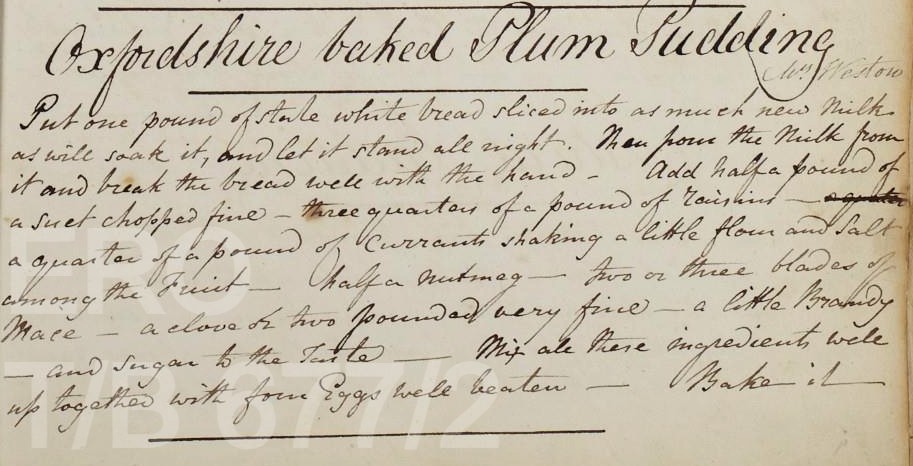 Oxfordshire baked Plum Pudding
Mrs. Weston
Put one pound of stale white bread sliced into as much new Milk
as will soak it, and let it stand all night. Then pour the Milk from
it and break the bread well with the hand - Add half a pound of
a suet chopped fine - three quarters of a pound of raisins - a quarter
a quarter of a pound of Currants shaking a little flour and Salt
among the Fruit - half a nutmeg - two or three blades of
Mace - a clove or two pounded very fine - a little Brandy
- and Sugar to the Taste - Mix all these ingredients well
up together with four Eggs well beaten - Bake it -
ERO
T/B 677/2